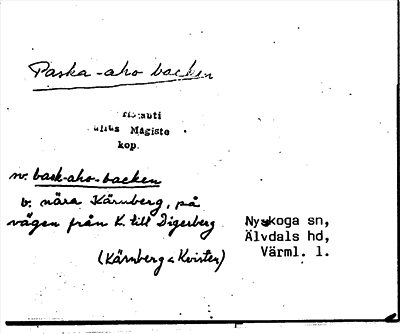 Paska-aho backen
Mägiste
kop.
sv. bask-aho-backen
b. nära Kärnberg, på
vägen från K. till Digerberg
(Kärnberg < Kvisten)
Nyskoga sn,
Älvdals hd,
Värml. l.